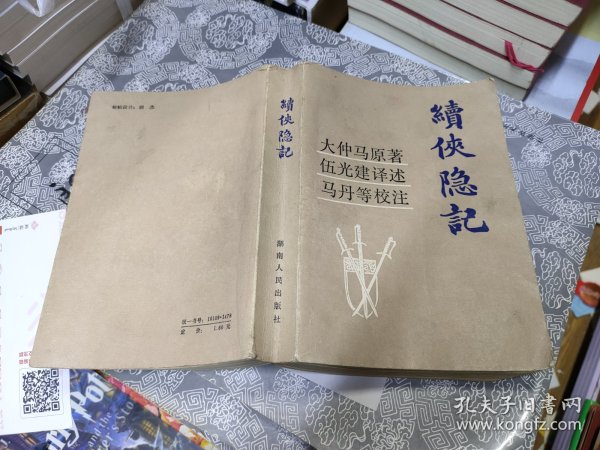 續俠隐記
大仲马原著
伍光建译述
马丹等校注
續俠隐記
湖南人民出版社
统一书号：10109·1479
定 价： 1.60 元
孔夫子旧书网
www.kongfz.com